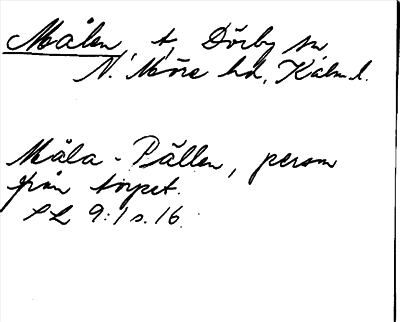 Målen, t, Dörby sn
N. Möre hd, Kalm l.
Måla-Pällen, person
från torpet.
SL 9:1 s. 16.